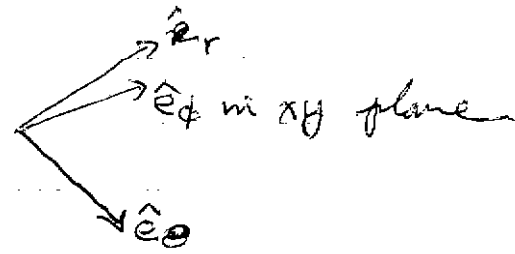 ê_r
ê_ϕ in xy plane
ê_θ